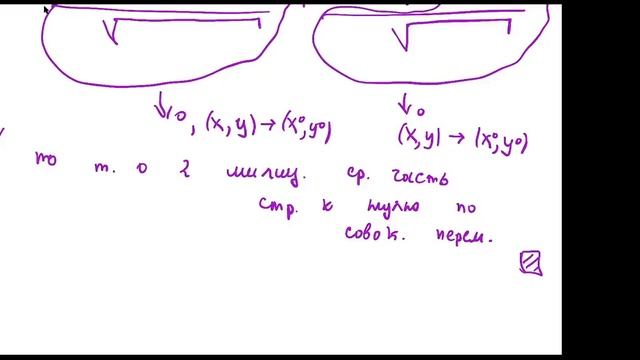 √ √
↓ 0, (x, y) → (x⁰, y⁰) ↓ 0
(x, y) → (x⁰, y⁰)
то т. о 2 милиц. ср. часть
стр. к нулю по
совок. перем.